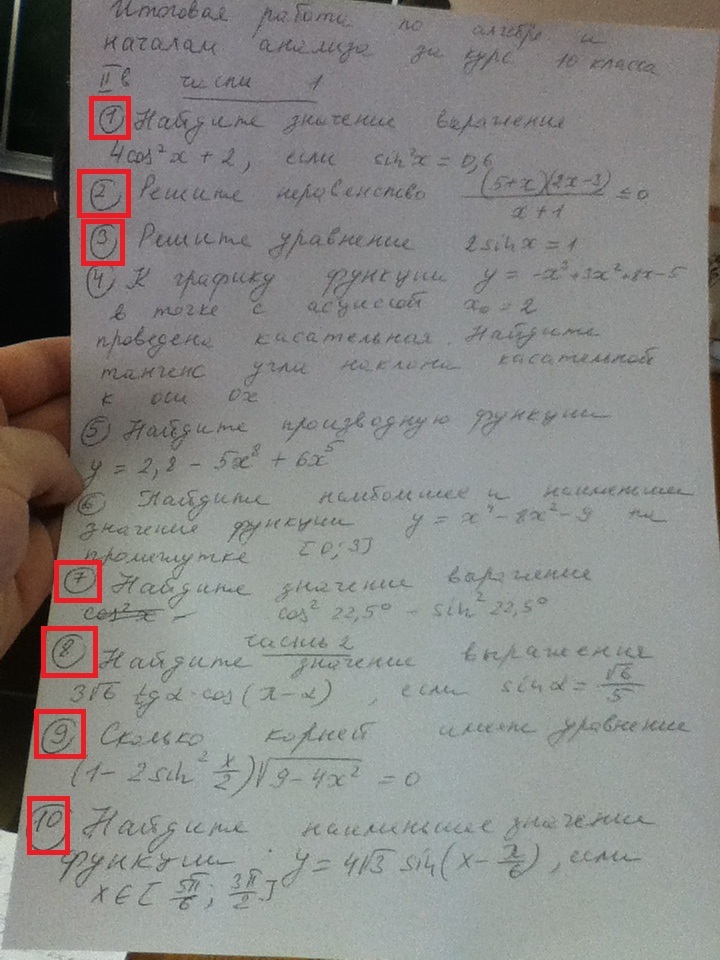 Итоговая работа по алгебре и
началам анализа за курс 10 класса
IIв части 1
① Найдите значение выражения
4cos²x + 2, если sin²x = 0,6
② Решите неравенство (5+x)(2x-3)/x+1 ≤ 0
③ Решите уравнение 2sinx = 1
④ К графику функции y = -x³+3x²+8x-5
в точке с абсциссой x₀ = 2
проведена касательная. Найдите
тангенс угла наклона касательной
к оси ox
⑤ Найдите производную функции
y = 2,8 - 5x⁸ + 6x⁵
⑥ Найдите наибольшее и наименьшее
значение функции y = x⁴ - 8x² - 9 на
промежутке [0;3]
⑦ Найдите значение выражение
cos² 22,5° - sin² 22,5°
часть 2
⑧ Найдите значение выражения
3√6 tgα·cos(π-α), если sinα = √6/5
⑨ Сколько корней имеет уравнение
(1 - 2sin² x/2)√9-4x² = 0
⑩ Найдите наименьшее значение
функции y = 4√3 sin(x - π/6), если
x∈[5π/6; 3π/2]